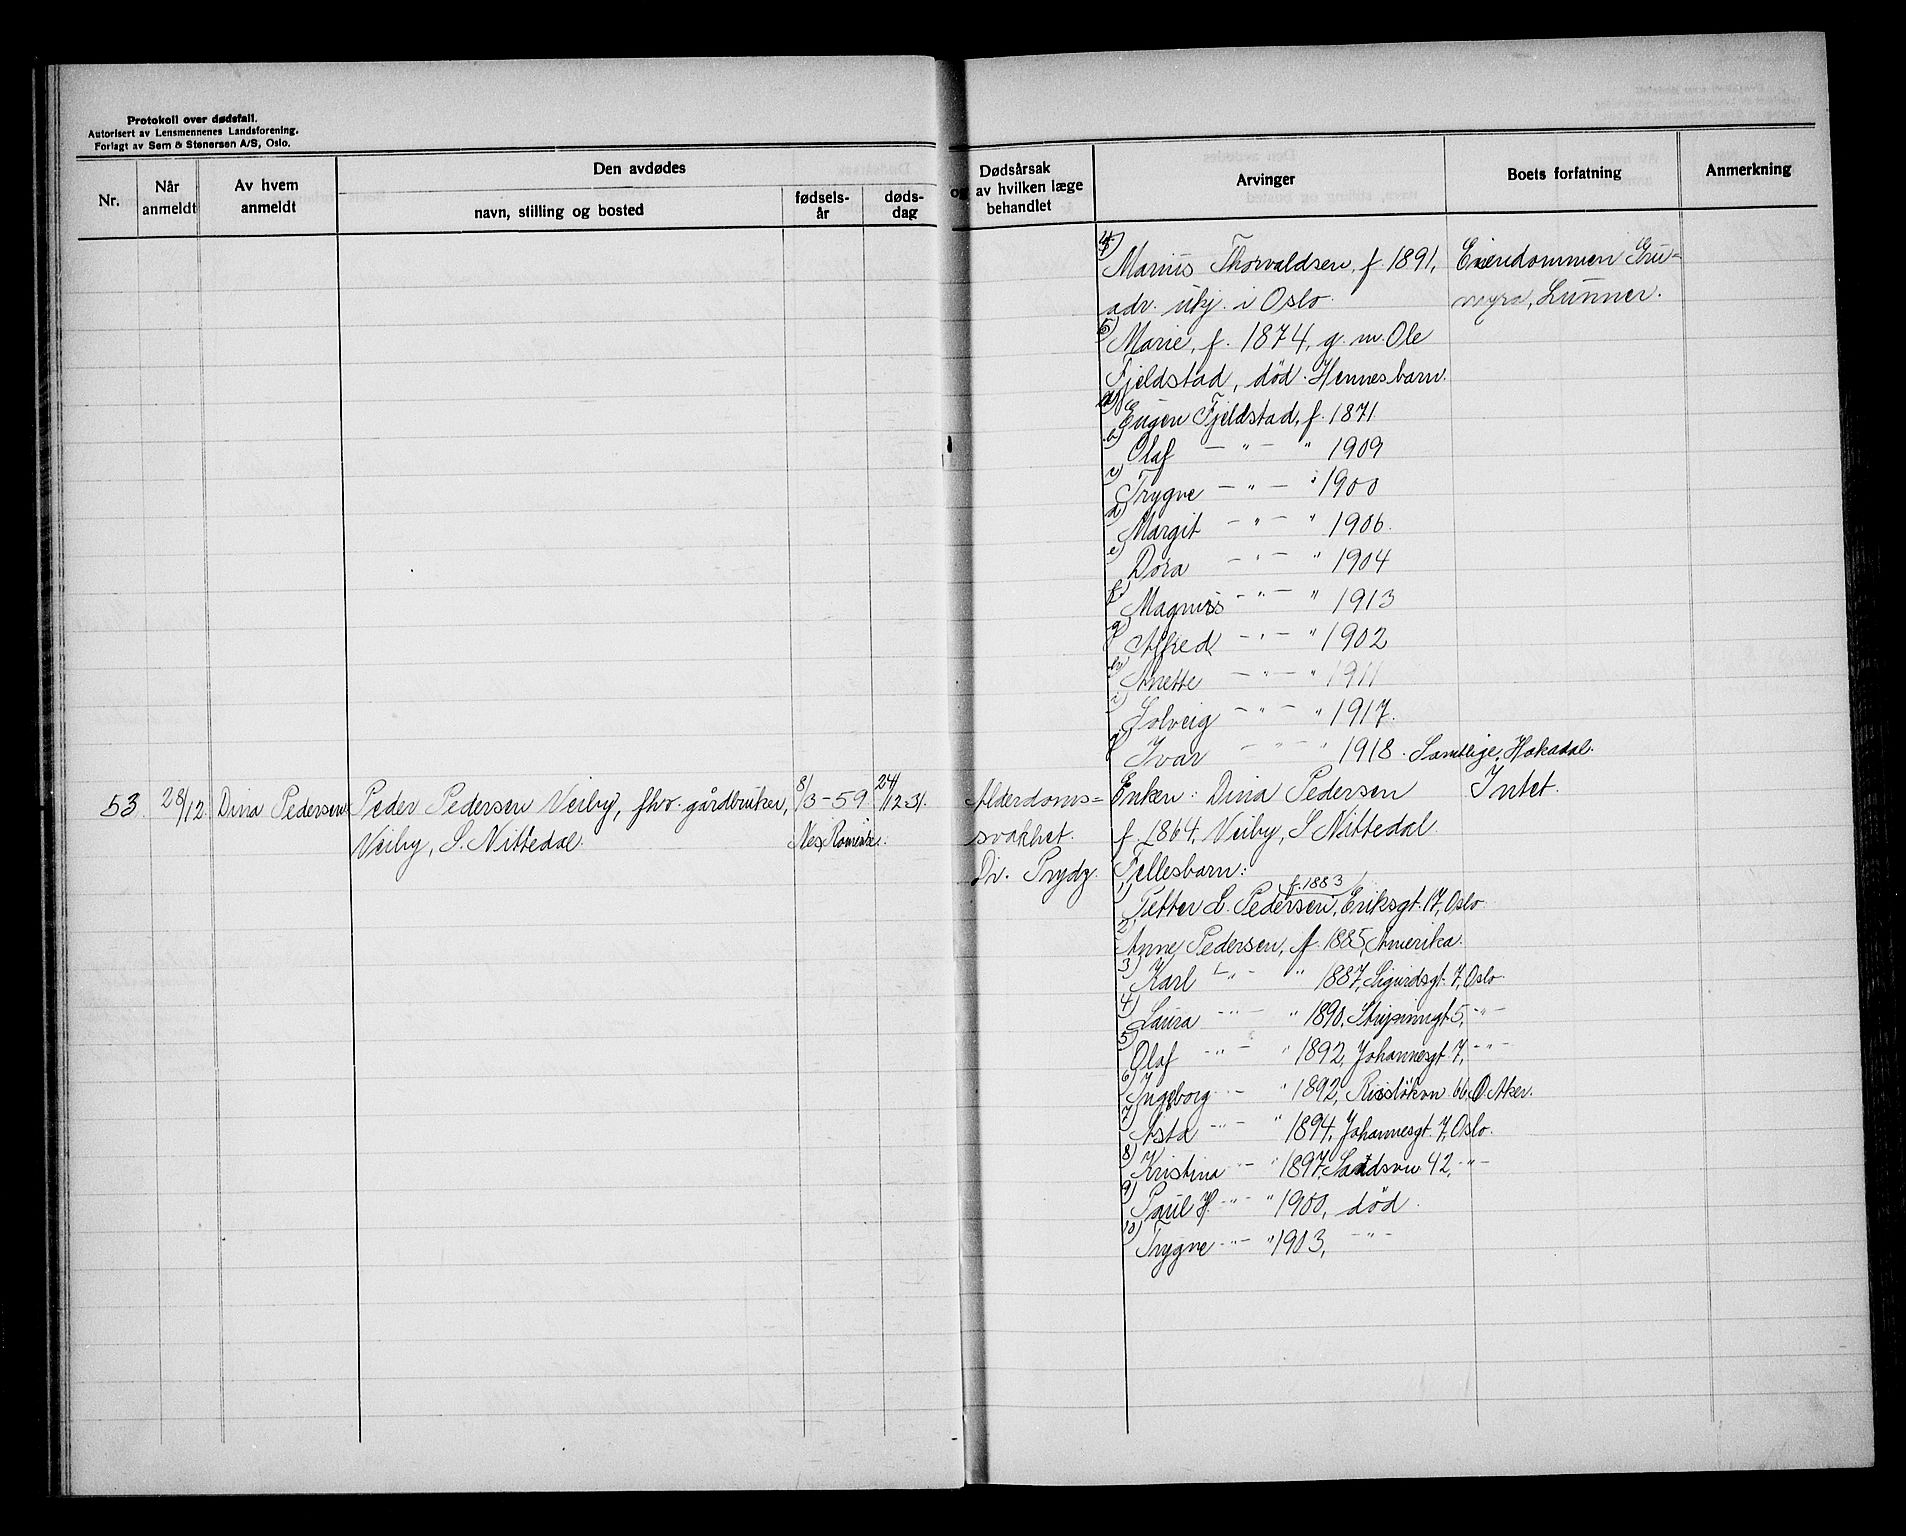 Protokoll over dødsfall.
Autorisert av Lensmennenes Landsforening.
Forlagt av Sem & Stenersen A/S, Oslo.
Nr.
Når
anmeldt
Av hvem
anmeldt
Den avdødes
navn, stilling og bosted
fødsels-
år
døds-
dag
Dødsårsak
og av hvilken læge
behandlet
Arvinger
Boets forfatning
Anmerkning
4) Marius Thorvaldsen, f. 1891, Eiendommen Gru-
adr. ukj. i Oslo. myra, Lunner.
5) Marie, f. 1874, g. m. Ole
Fjeldstad, død. Hennes barn:
a) Eugen Fjeldstad, f. 1871
b) Olaf — " — " 1909
c) Trygve — " — " 1900
d) Margit — " — " 1906.
e) Dora — " — " 1904
f) Magnus — " — " 1913
g) Alfred — " — " 1902
h) Anette — " — " 1911
i) Solveig — " — " 1917.
j) Ivar — " — " 1918. Samtlige, Hakadal.
53. 28/12. Dina Pedersen Peder Pedersen Veiby, fhv. gårdbruker, 8/3-59 24/12.31. Alderdoms= Enken: Dina Pedersen Intet.
Veiby, S. Nittedal. Nes, Romerike. svakhet. f. 1864, Veiby, S. Nittedal
Dr. Prydz. Fellesbarn:
1) Petter L. Pedersen, f. 1883 Eriksgt. 17, Oslo
2) Anne Pedersen, f. 1885, Amerika.
3) Karl L — " — " 1887, Sigurdsgt. 7, Oslo.
4) Laura — " — " 1890, 5, — " —
5) Olaf — " — " 1892, Johannesgt. 7, — " —
6) Ingeborg — " — " 1892, 66, Ø. Aker.
7) Asta — " — " 1894, Johannesgt. 7, Oslo.
8) Kristina — " — " 1897, 42, — " —
9) Paul H. — " — " 1900, død.
10) Trygve — " — " 1903, — " —